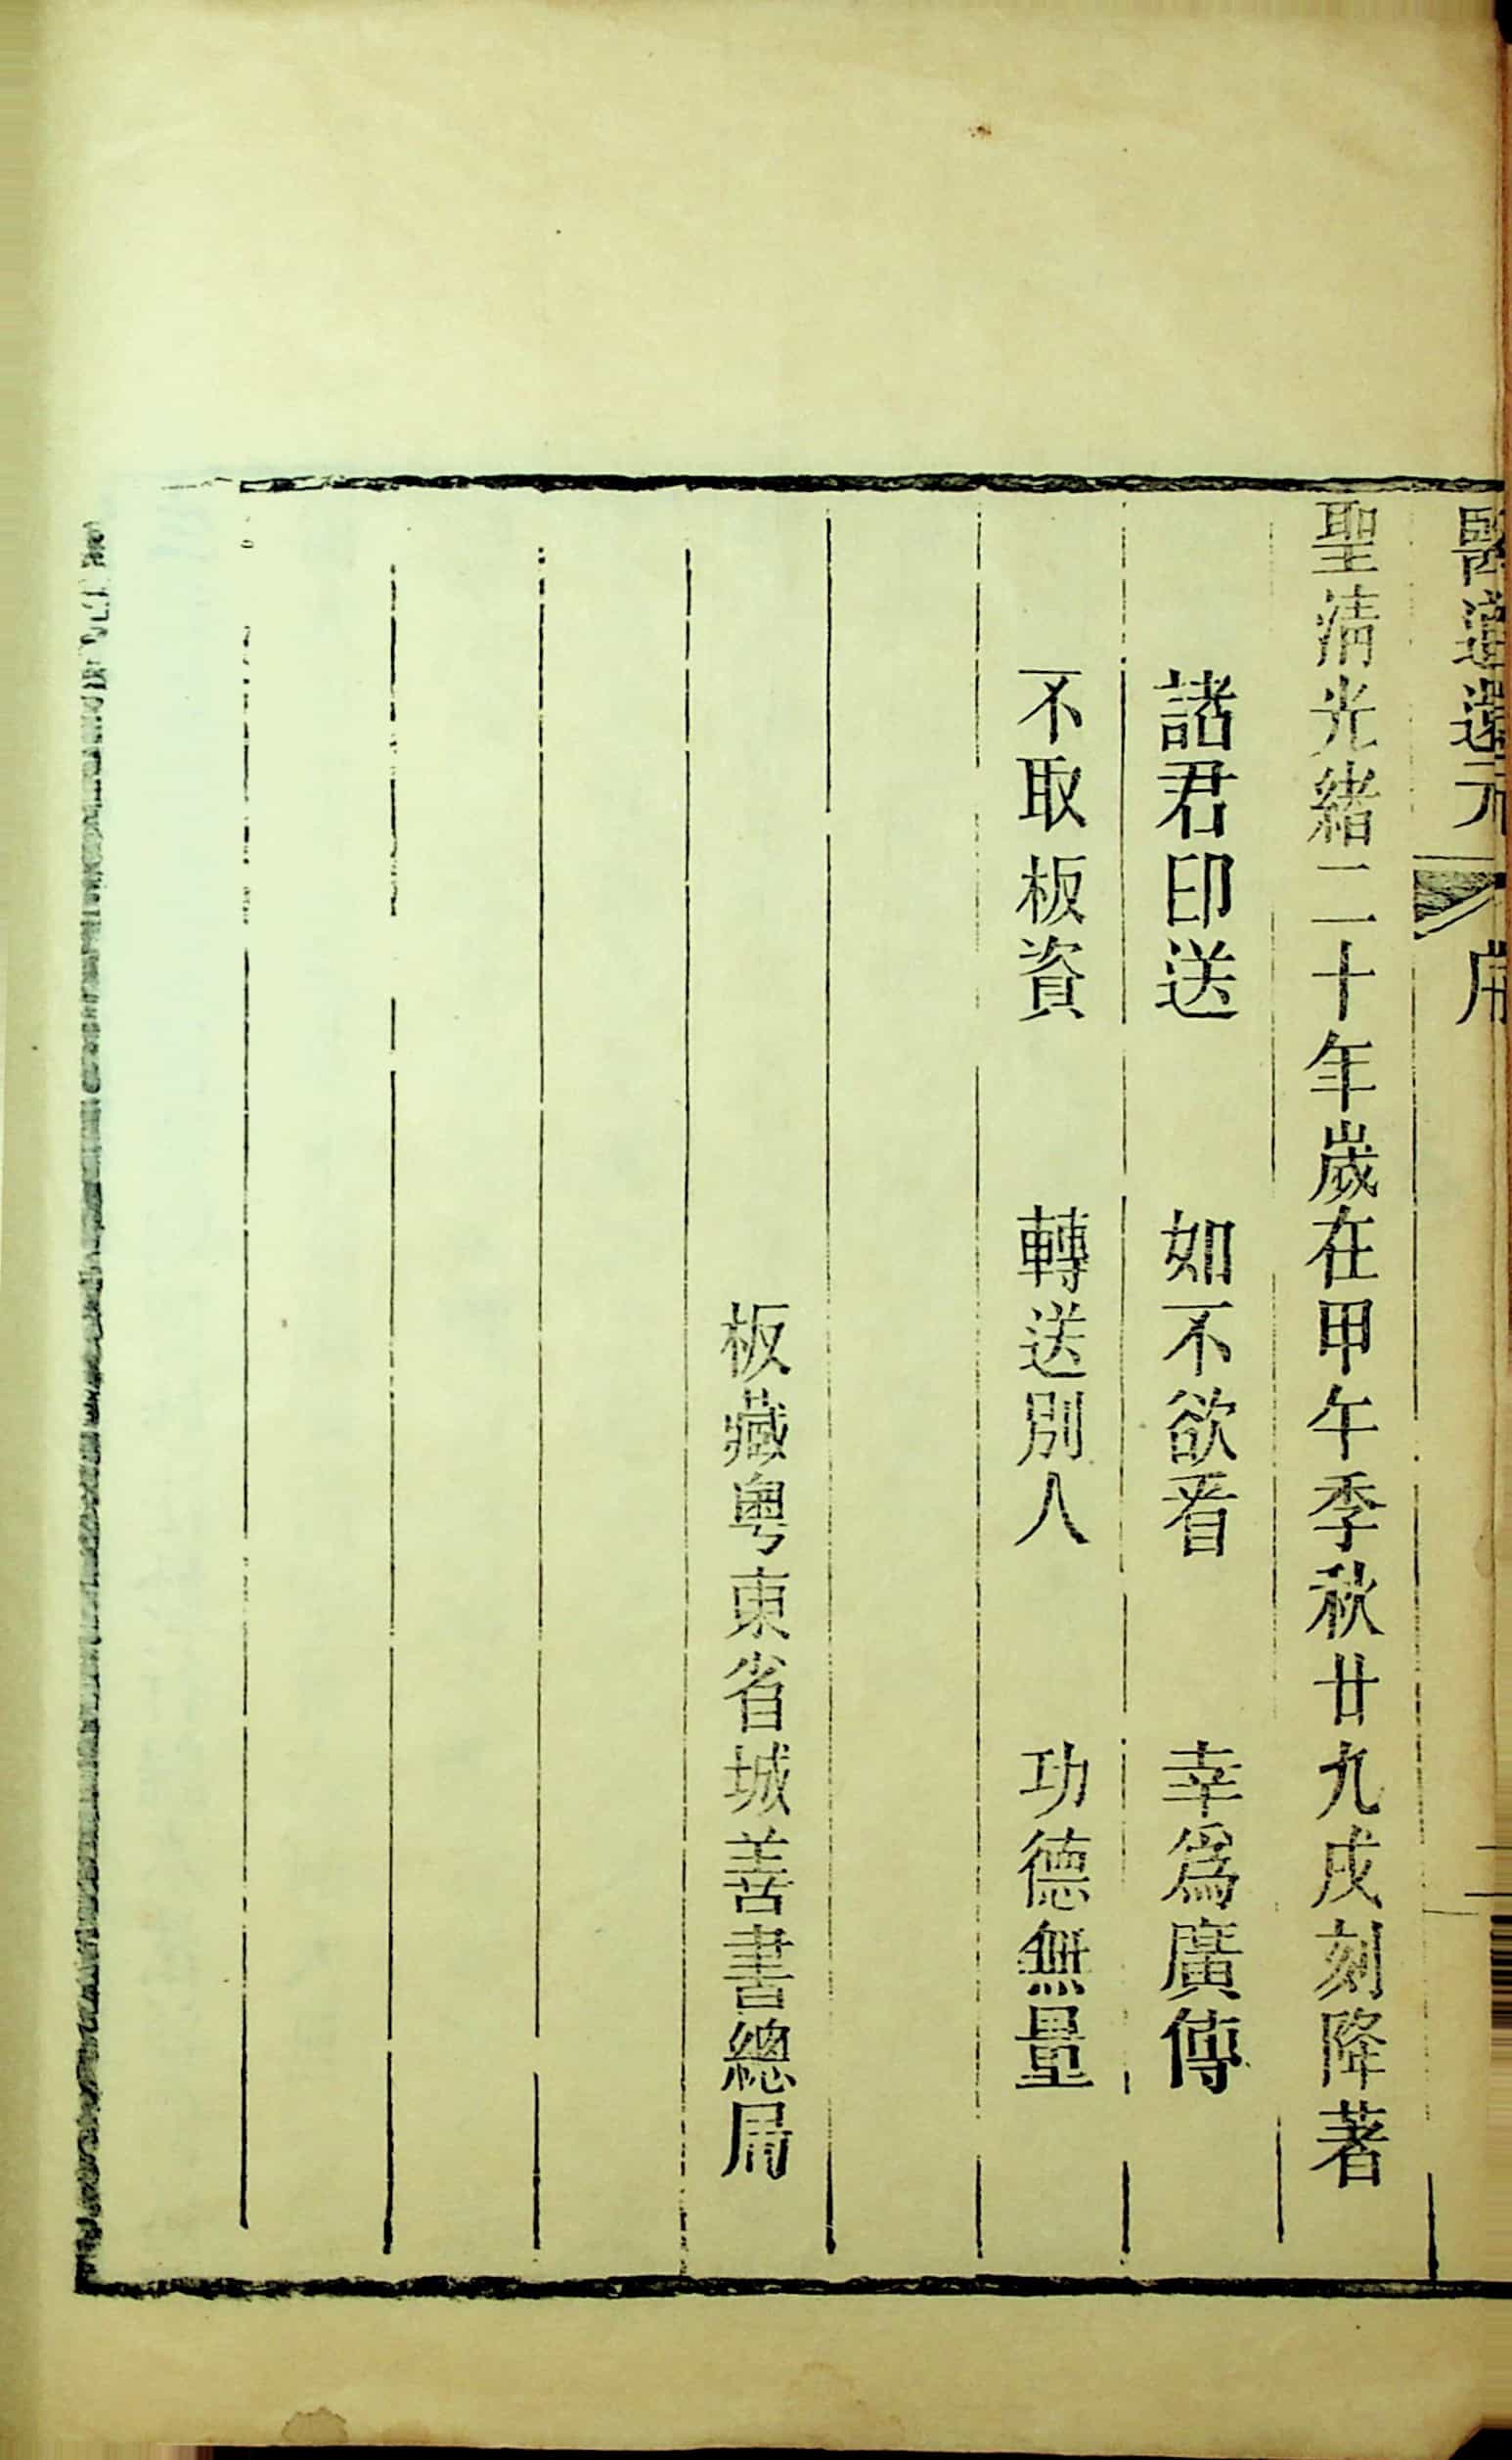 醫道還元
二
聖清光緒二十年歲在甲午季秋廿九戌刻降著
諸君印送　如不欲看　幸爲廣傳
不取板資　轉送別人　功德無量
板藏粤東省城善書總局